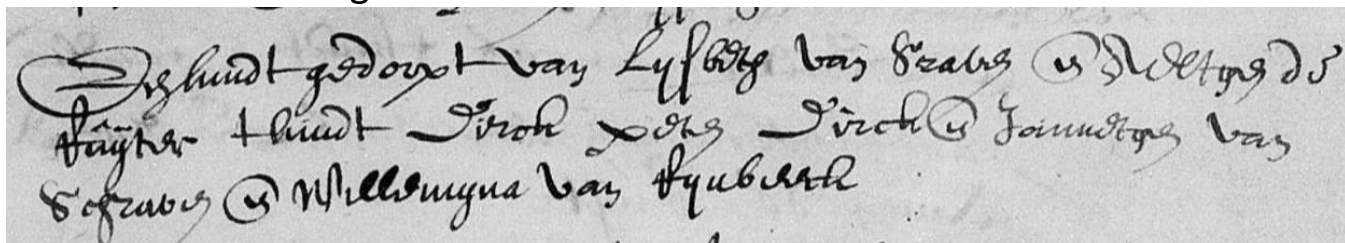 Een kindt gedoopt van Lysbeth van Scraven en Neeltgen de
Ruyter t kindt Dirck peten Dirck en Jannetgen van
Schraven en Willemyna van Rynbeeck